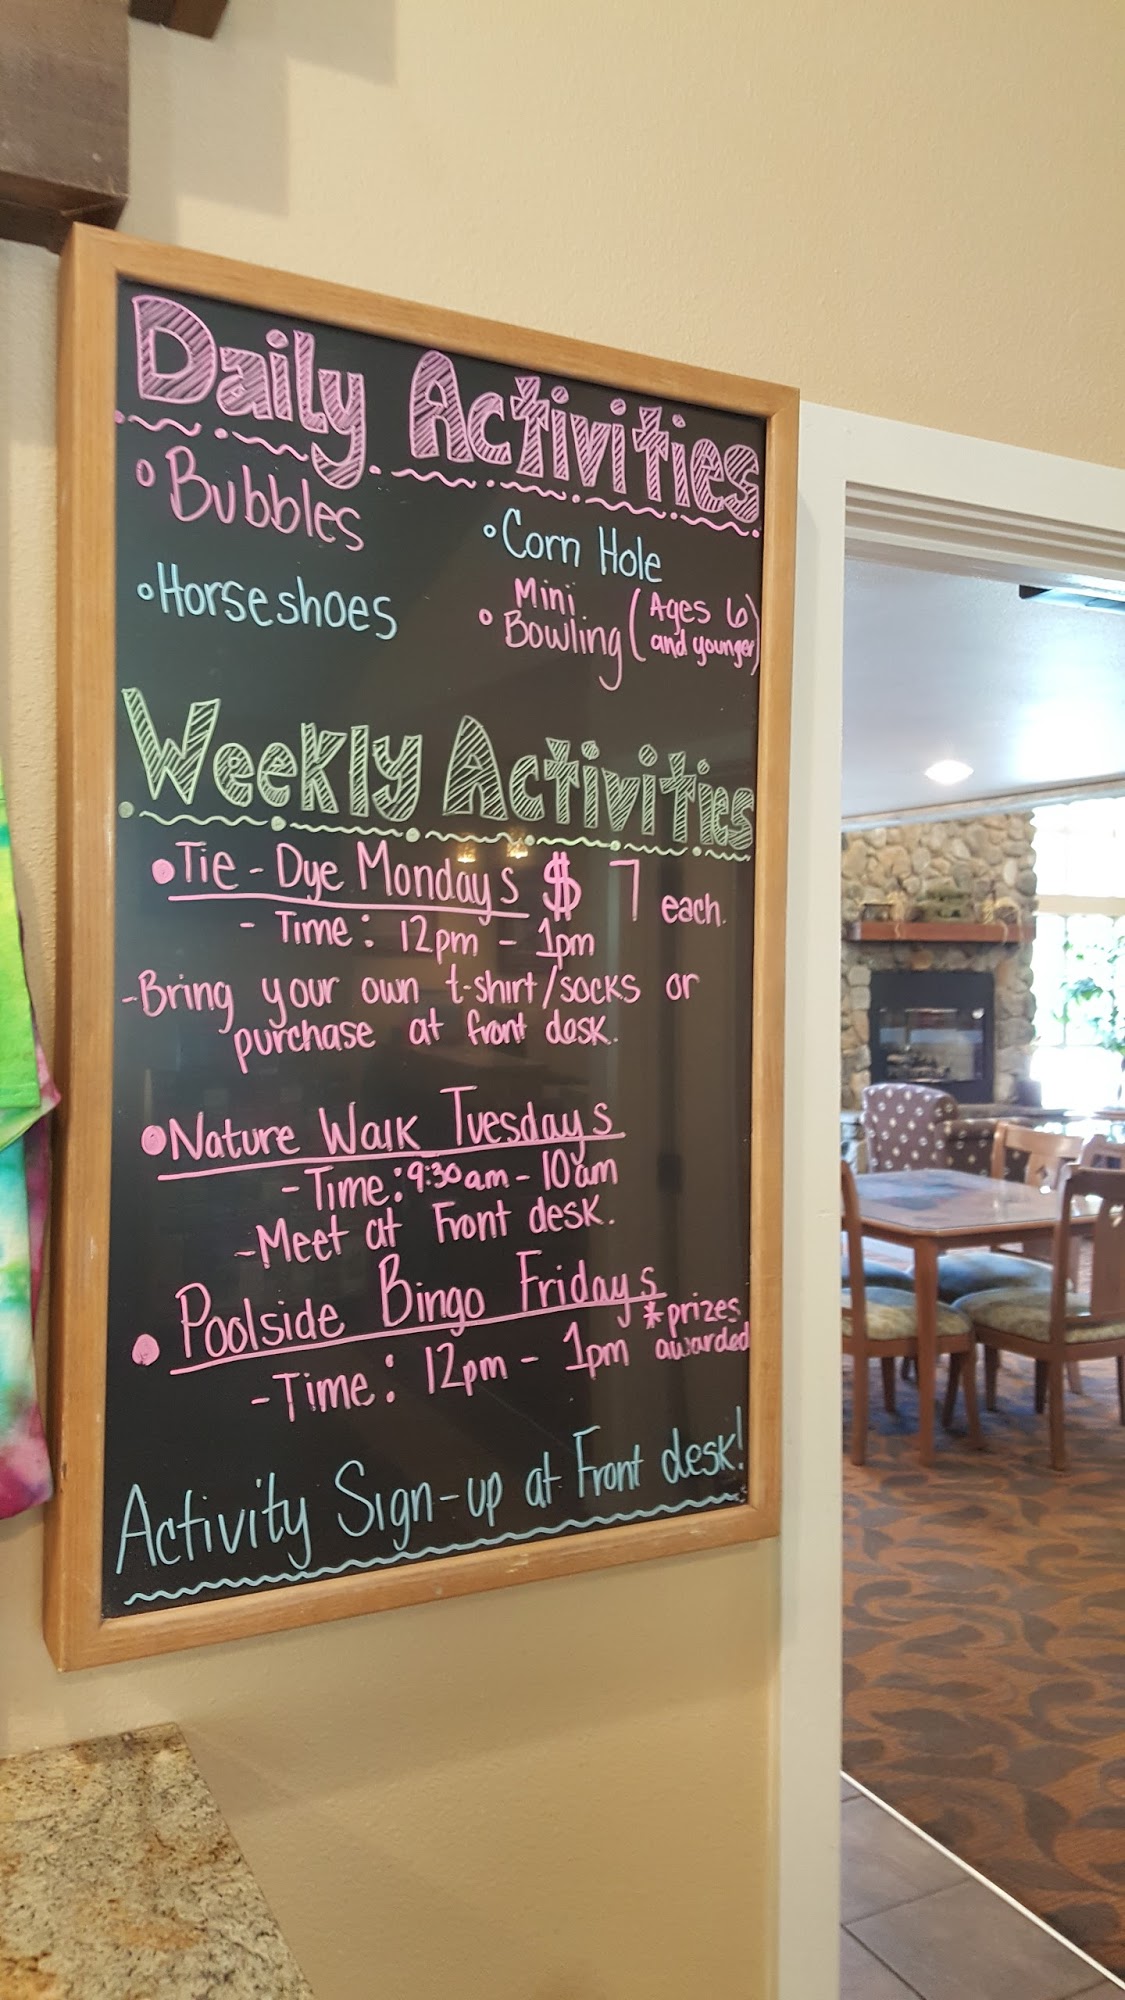 Daily Activities
• Bubbles
• Corn Hole
• Horseshoes
• Mini Bowling (Ages 6 and younger)
Weekly Activities
• Tie-Dye Mondays $7 each.
- Time: 12pm - 1pm
- Bring your own t-shirt/socks or
purchase at front desk.
• Nature Walk Tuesdays
- Time: 9:30am - 10am
- Meet at Front desk.
• Poolside Bingo Fridays
*prizes awarded
- Time: 12pm - 1pm
Activity Sign-up at Front desk!